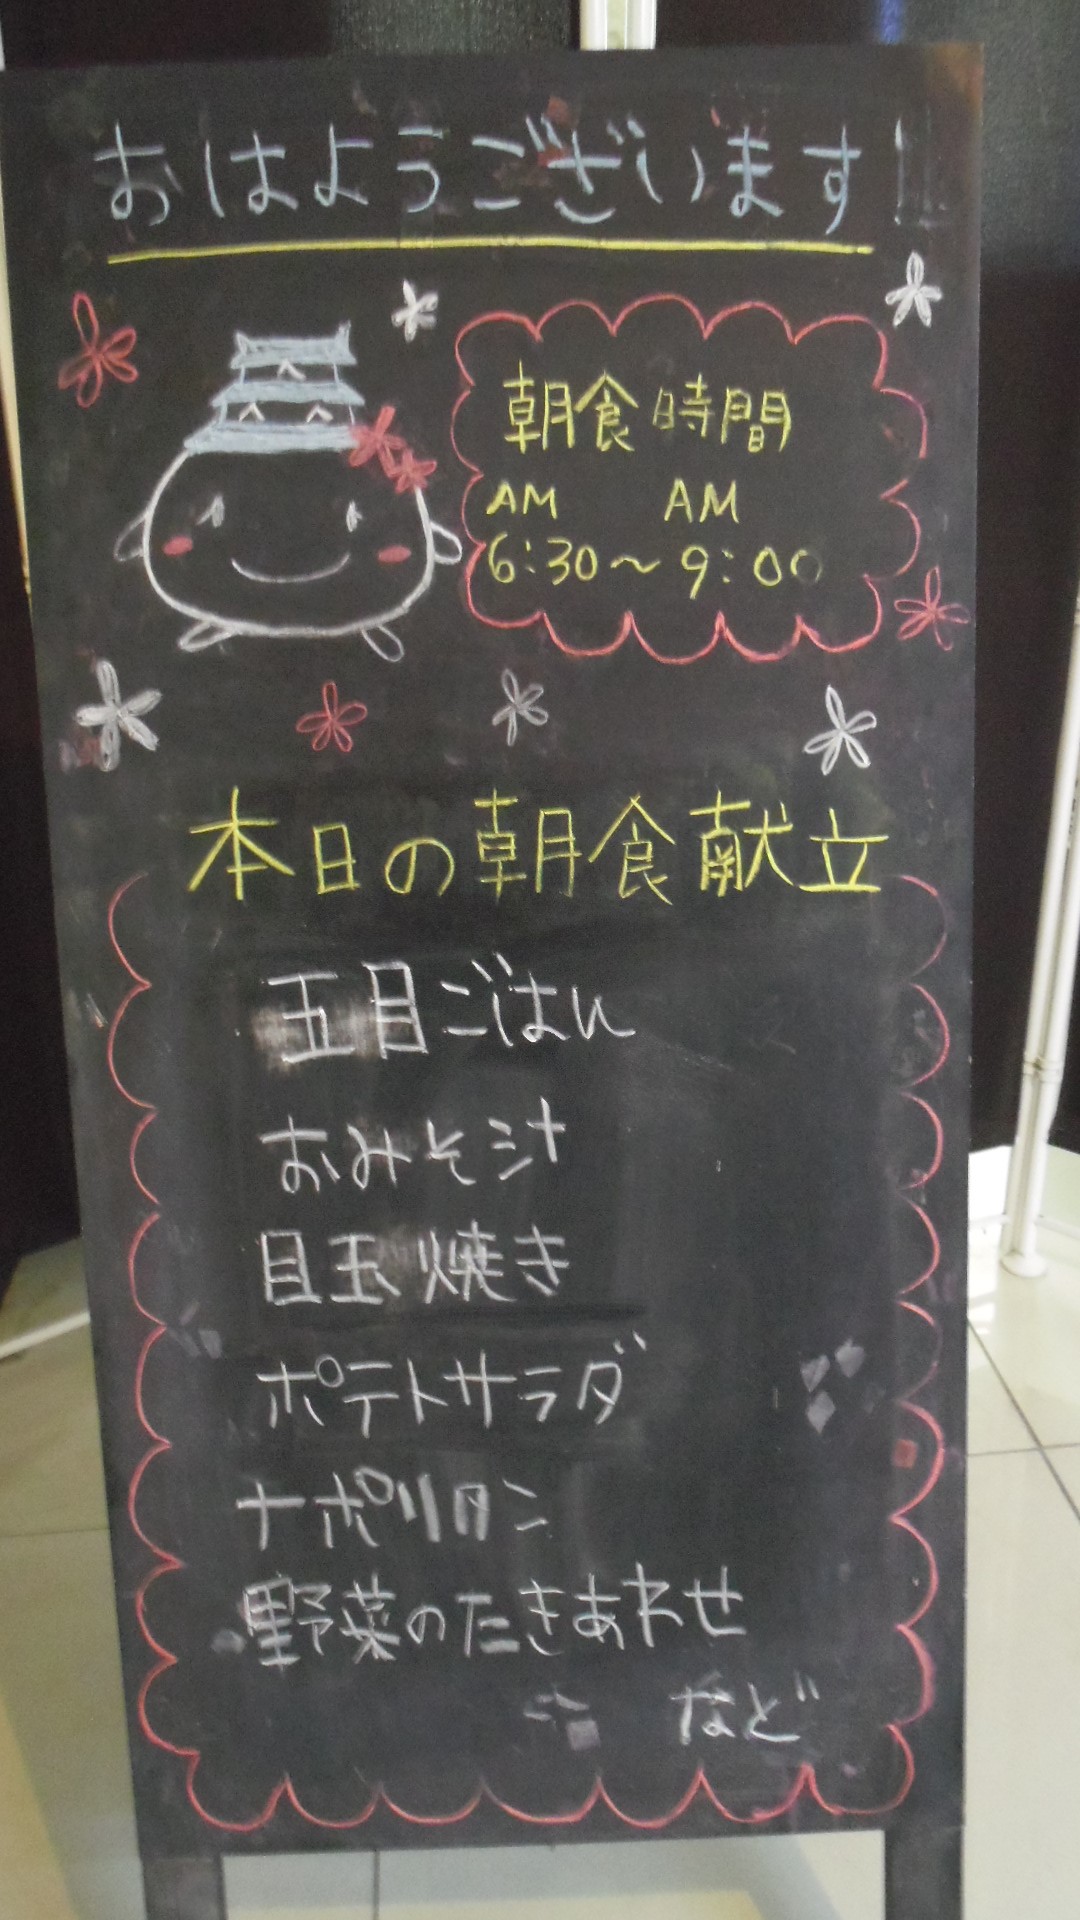 おはようございます!
朝食時間
AM AM
6:30～9:00
本日の朝食献立
五目ごはん
おみそ汁
目玉焼き
ポテトサラダ
ナポリタン
野菜のたきあわせ
など